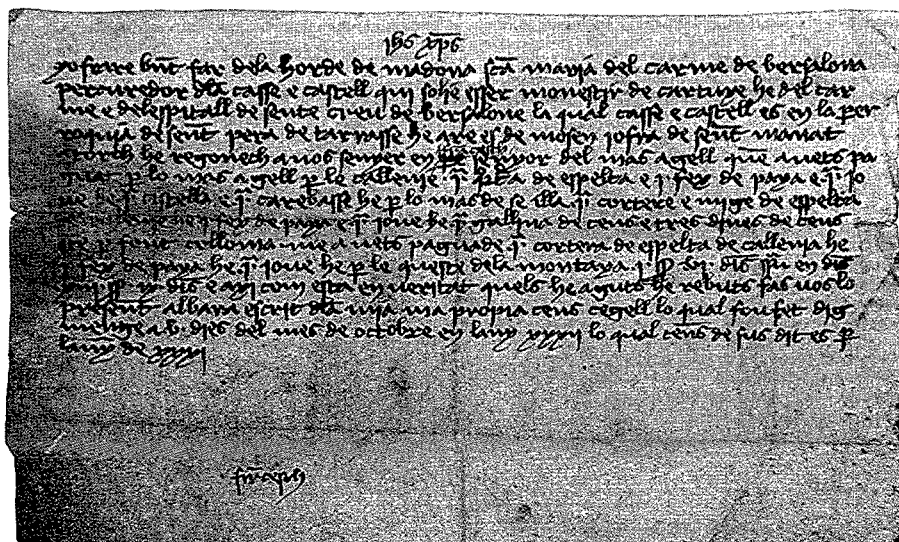 jhs xps
yo frare bnt far dela horde de madona sca maria del carme de berssalona
percuredor dla casse e castell qui sohe esser monestir de cartuxe he del car
me e delesspitall de sente creu de berssalone la qual casse e castell es en la per
roquia de sent pera de tarrasse he are es de mosen jofra de sent manat
atorch he regonech a vos senyer en servor del mas agell que avets pa
guat p lo mas agell p lo callenie j de espelta e j fex de paya e j jo
ve de j castella e j carebasse he p lo mas de se illa j cortere e mige de espelta
e j fex de paya e j jove he j gallina de cens e tres dines de cens
sent cellonia me avets paguade j cortera de espelta de callenia he
j fex de paya he j jove he p le queste dela montaya
e axi com esta en veritat quels he aguts he rebuts fas vos lo
present albara escrit dla mia ma propia cens cegell lo qual fou fet dig
menge a v dies del mes de octobre en lany xxxii lo qual cens de sus dit es p
lany de xxxi